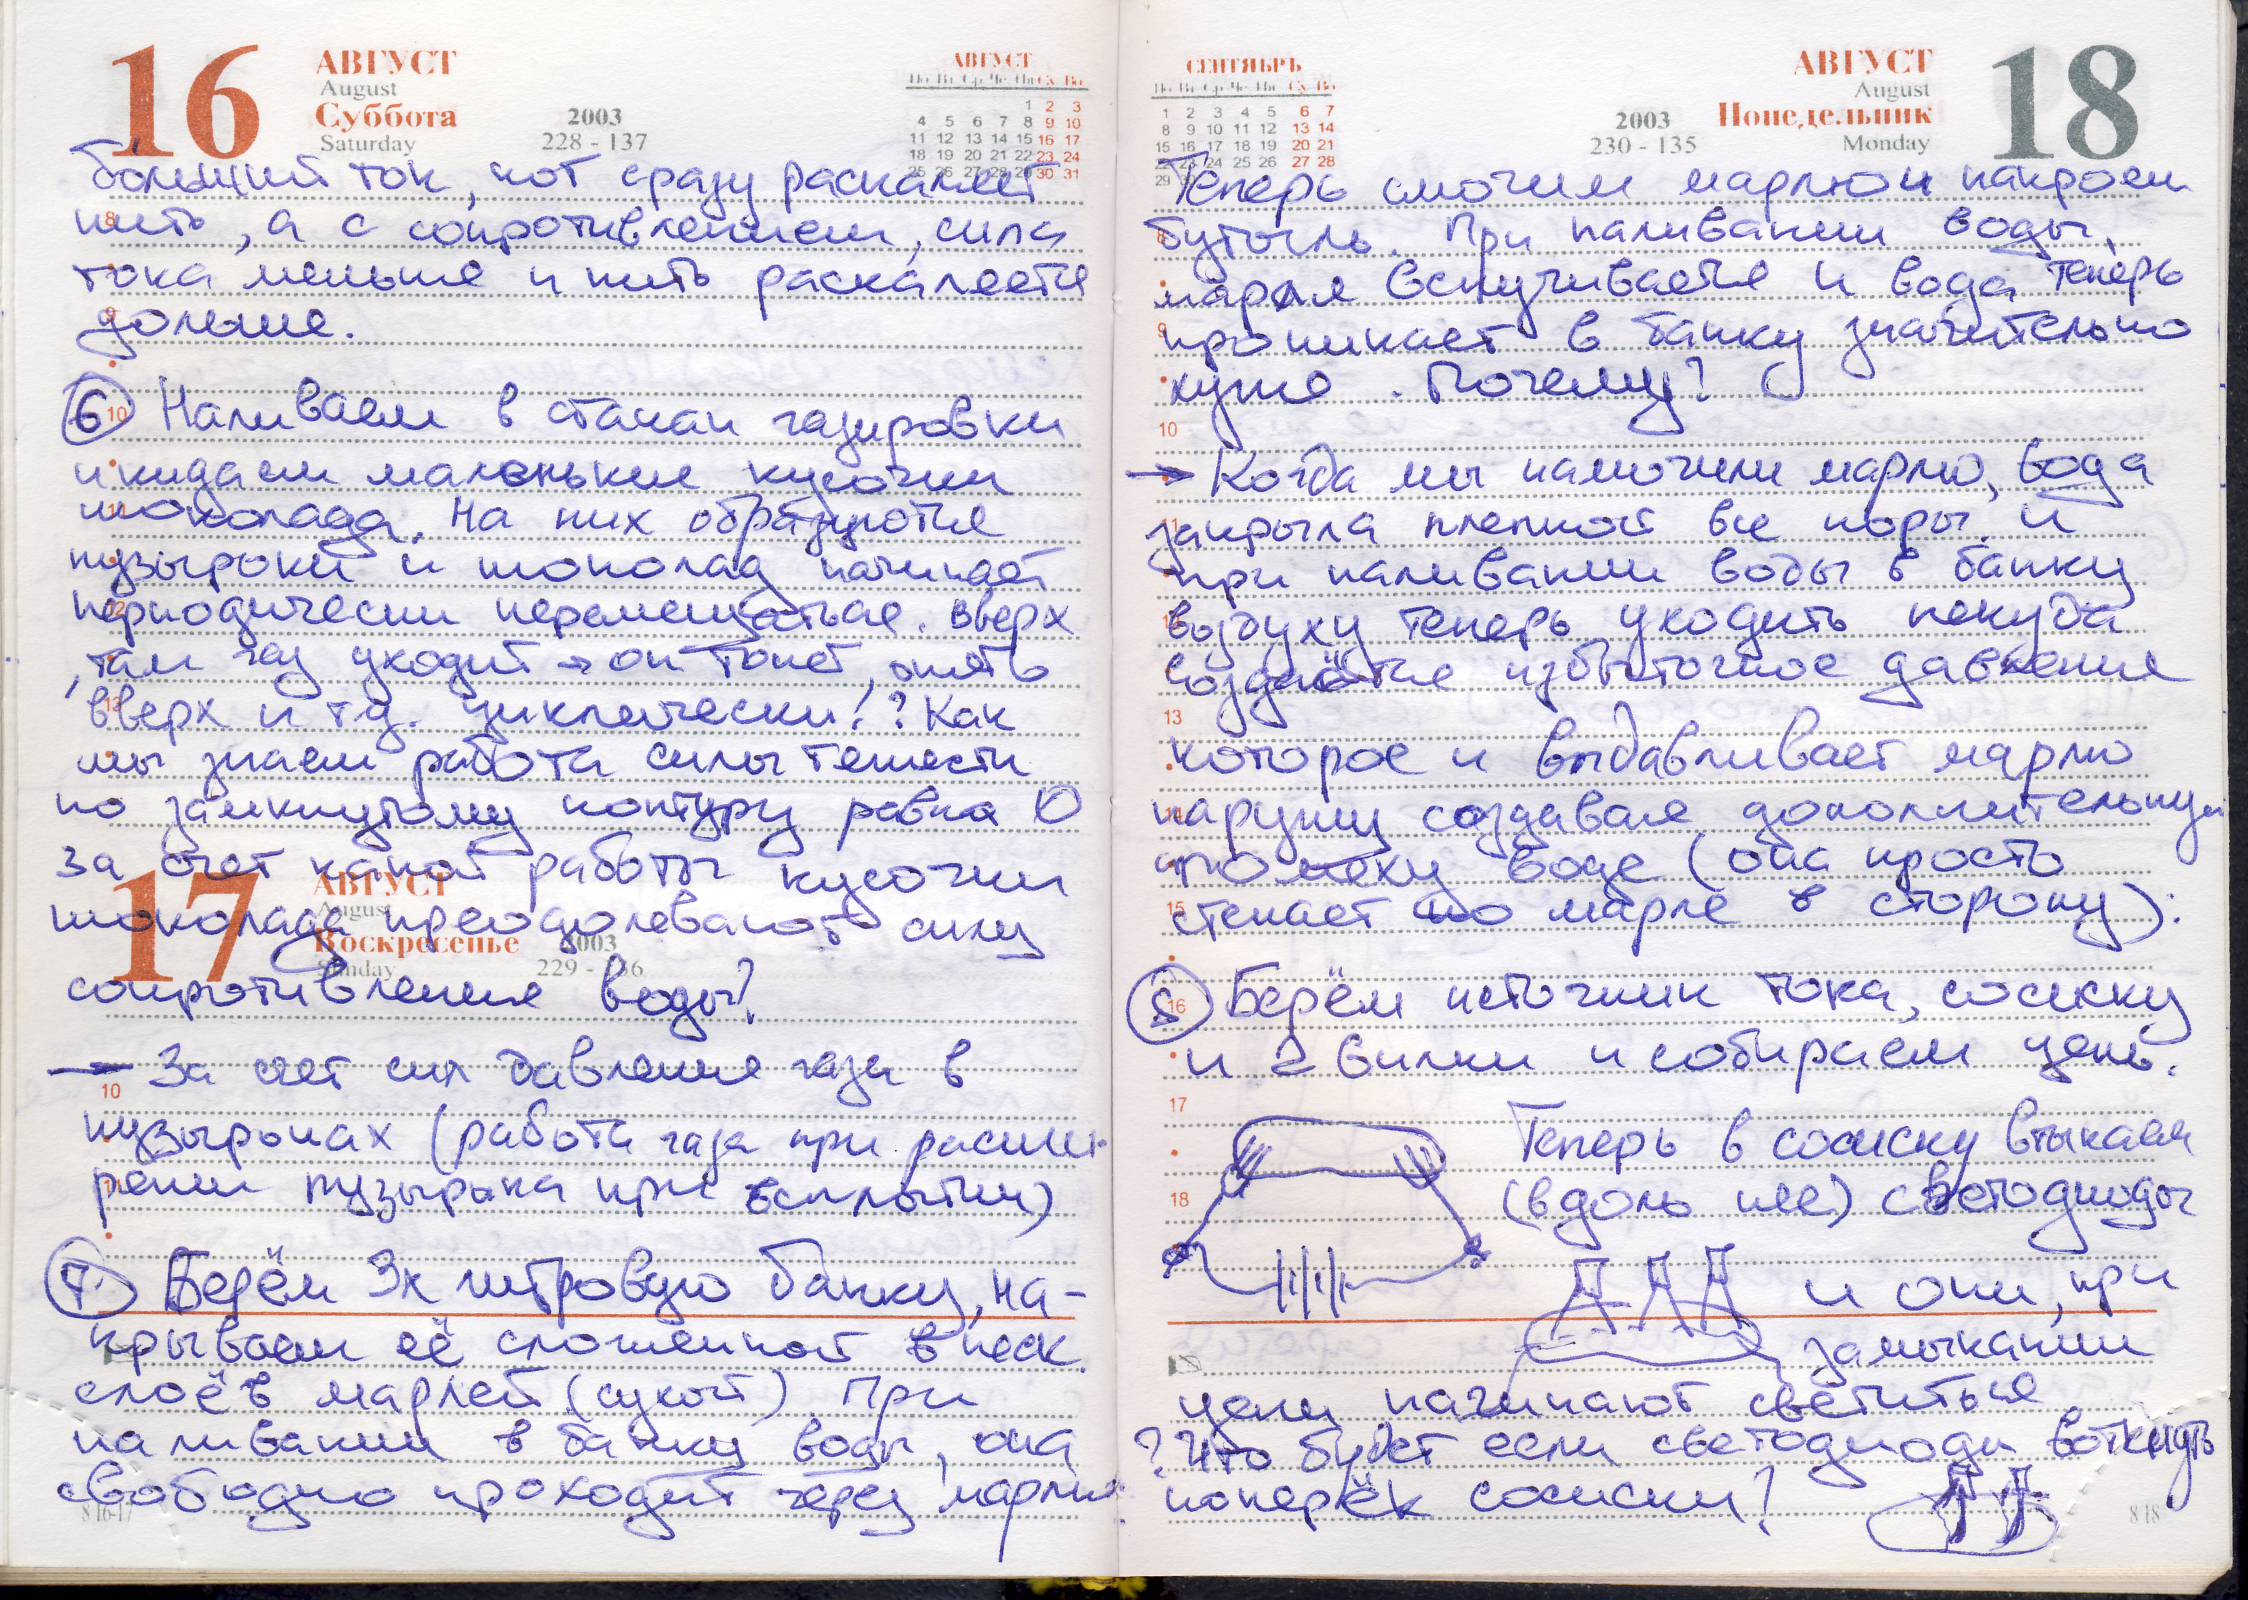 16
АВГУСТ
August
Суббота
Saturday
2003
228 - 137
АВГУСТ
По Вт Ср Че Пя Су Во
1 2 3
4 5 6 7 8 9 10
11 12 13 14 15 16 17
18 19 20 21 22 23 24
25 26 27 28 29 30 31
больший ток, кот сразу раскаляет
нить, а с сопротивлением, сила
тока меньше и нить раскаляется
дольше.
6 Наливаем в стакан газировки
и кидаем маленькие кусочки
шоколада. На них образуются
пузырьки и шоколад начинает
периодически перемещаться. вверх
, там газ уходит → он тонет, опять
вверх и т д. циклически! ? Как
мы знаем работа силы тяжести
по замкнутому контуру равна 0
За счет какой работы кусочки
17
АВГУСТ
August
Воскресенье
Sunday
2003
229 - 136
шоколада преодолевают силу
сопротивления воды?
→ За счет сил давления газа в
пузырьках (работа газа при расши-
рении пузырька при всплытии)
7 Берём 3х литровую банку, на-
крываем её сложенной в неск.
слоёв марлей (сухой). При
наливании в банку воды, она
свободно проходит через марлю.
8 16-17
СЕНТЯБРЬ
По Вт Ср Че Пя Су Во
1 2 3 4 5 6 7
8 9 10 11 12 13 14
15 16 17 18 19 20 21
22 23 24 25 26 27 28
29 30
2003
230 - 135
АВГУСТ
August
Понедельник
Monday
18
Теперь смочим марлю и накроем
бутыль. При наливании воды,
марля вспучивается и вода теперь
проникает в банку значительно
хуже. Почему?
→ Когда мы намочили марлю, вода
закрыла пленкой все поры. и
при наливании воды в банку
воздуху теперь уходить некуда
создаётся избыточное давление
которое и выдавливает марлю
наружу создавая дополнительную
помеху воде (она просто
стекает по марле в сторону).
8 Берём источник тока, сосиску
и 2 вилки и собираем цепь.
Теперь в сосиску втыкаем
(вдоль нее) светодиоды
и они, при
замыкании
цепи начинают светиться
? Что будет если светодиоды воткнуть
поперёк сосиски?
8 18